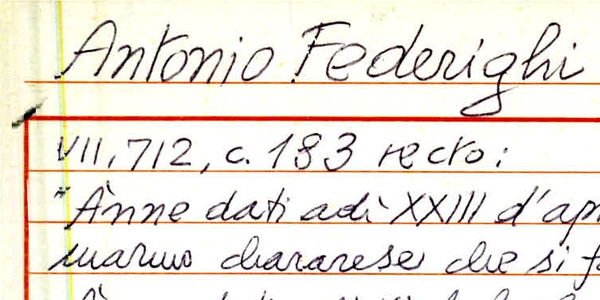 Antonio Federighi
VII, 712, c. 183 recto:
"Ànne dati adì XXIII d'ap
marmo chararese che si fa